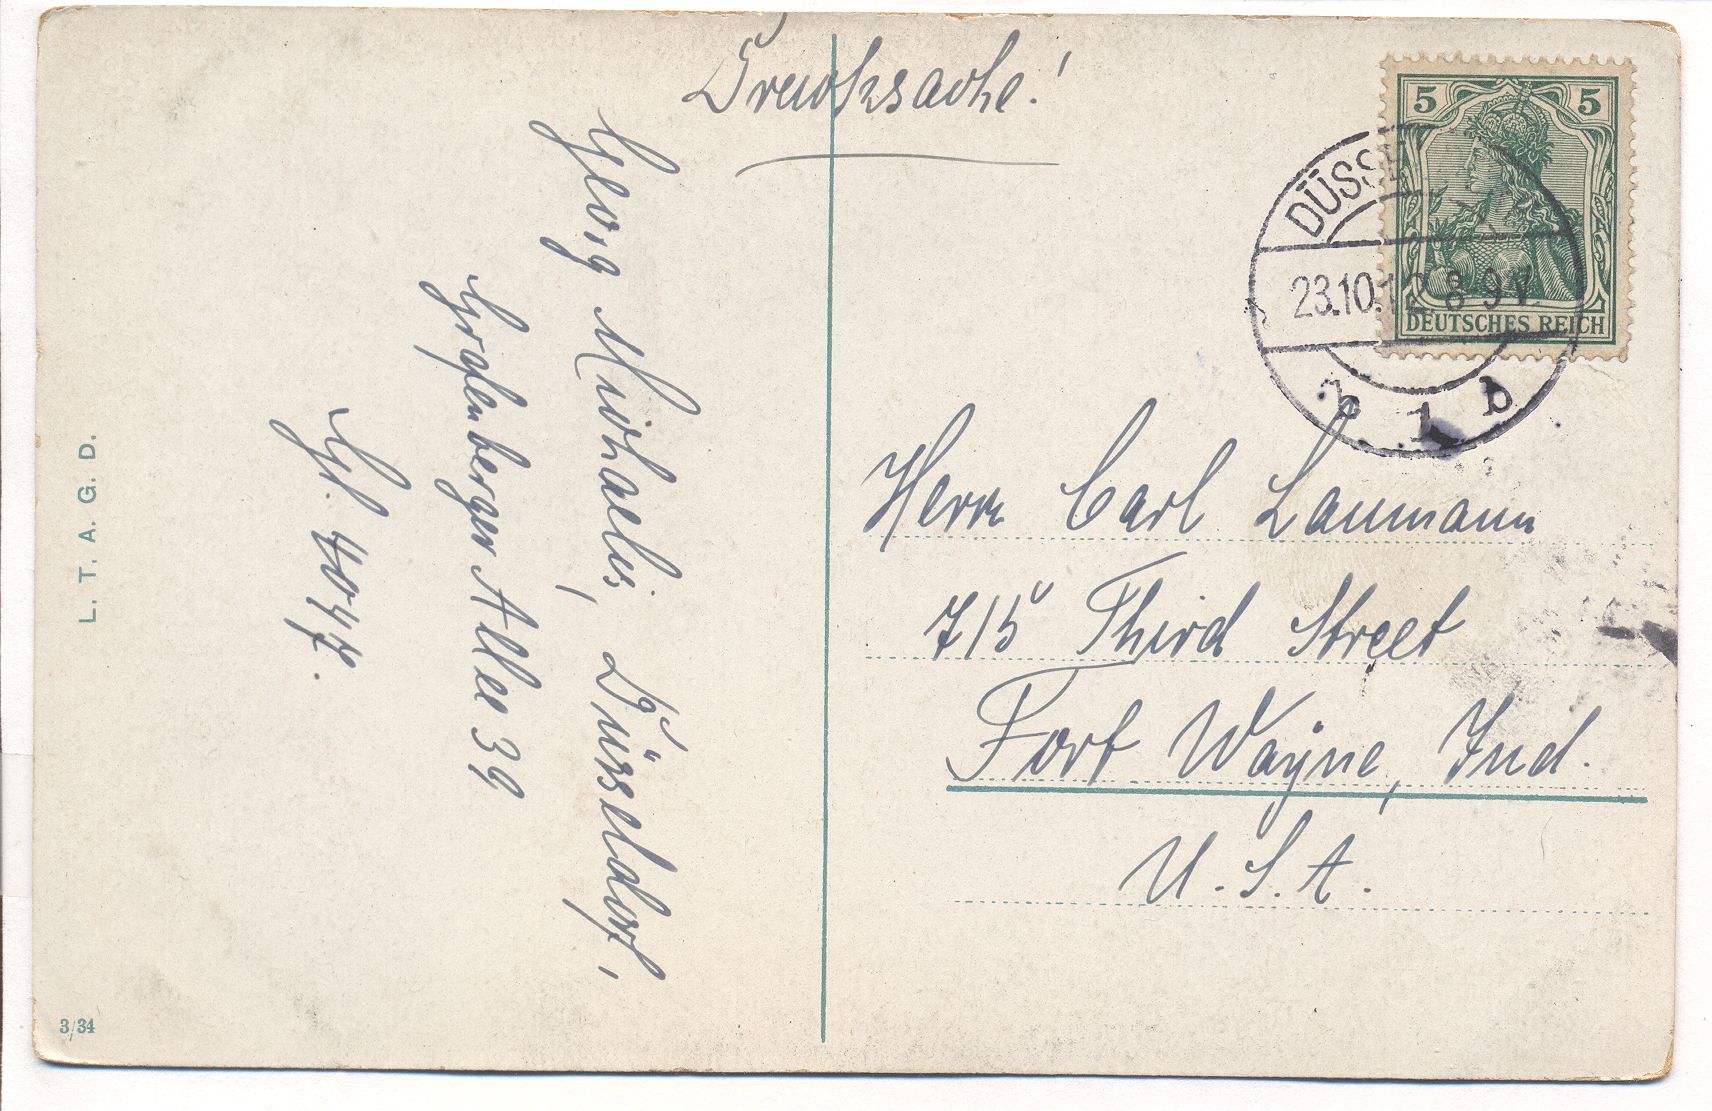 Drucksache!
Georg Michaelis, Düsseldorf,
Grafenberger Allee 39
Gf. 4047.
L. T. A. G. D.
3/34
5 5
DEUTSCHES REICH
DÜSSE
23.10.12. 8-9V.
* 1 b
Herrn Carl Laumann
715 Third Street
Fort Wayne, Ind.
U. S. A.